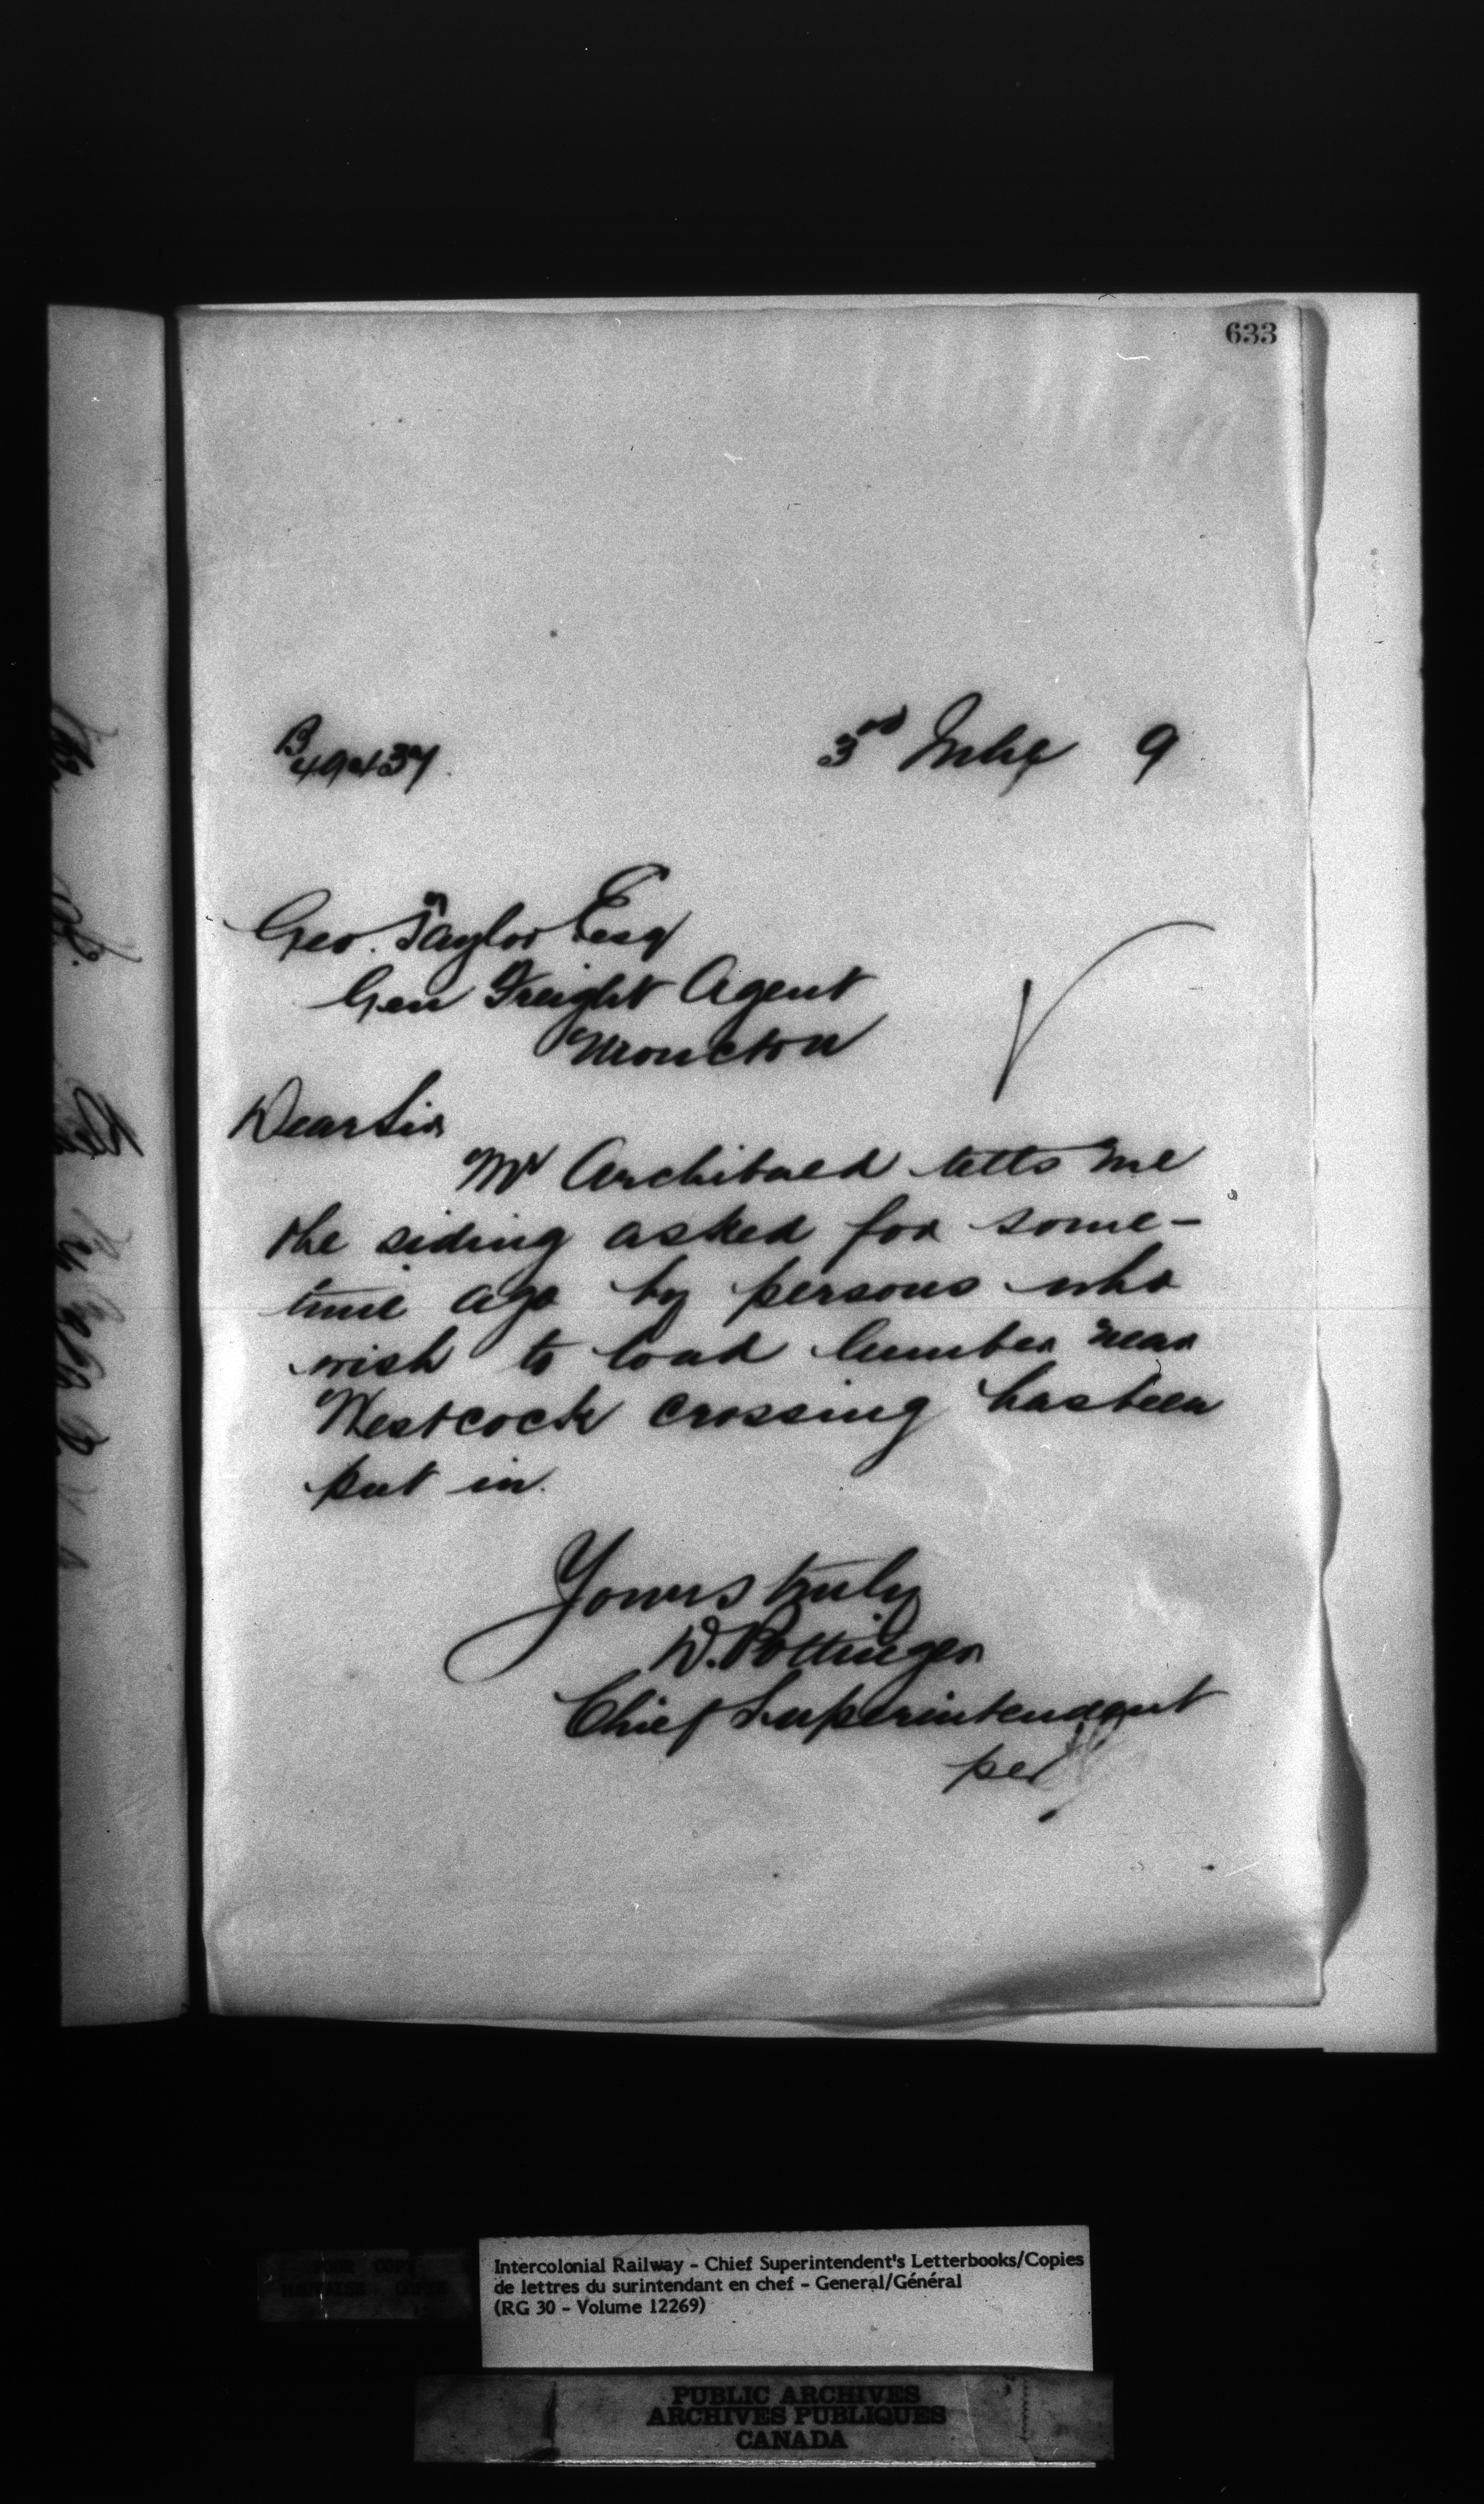 633
B 49437
3rd 9
Geo. Taylor Esq
Gen Freight Agent
Moncton
Dear Sir
Mr Archibald tells me
the siding asked for some-
time ago by persons who
wish to load lumber near
Westcock crossing has been
put in.
Yours truly
D. Pottinger
Chief Superintendent
per
Intercolonial Railway - Chief Superintendent's Letterbooks/Copies
de lettres du surintendant en chef - General/Général
(RG 30 - Volume 12269)
PUBLIC ARCHIVES
ARCHIVES PUBLIQUES
CANADA